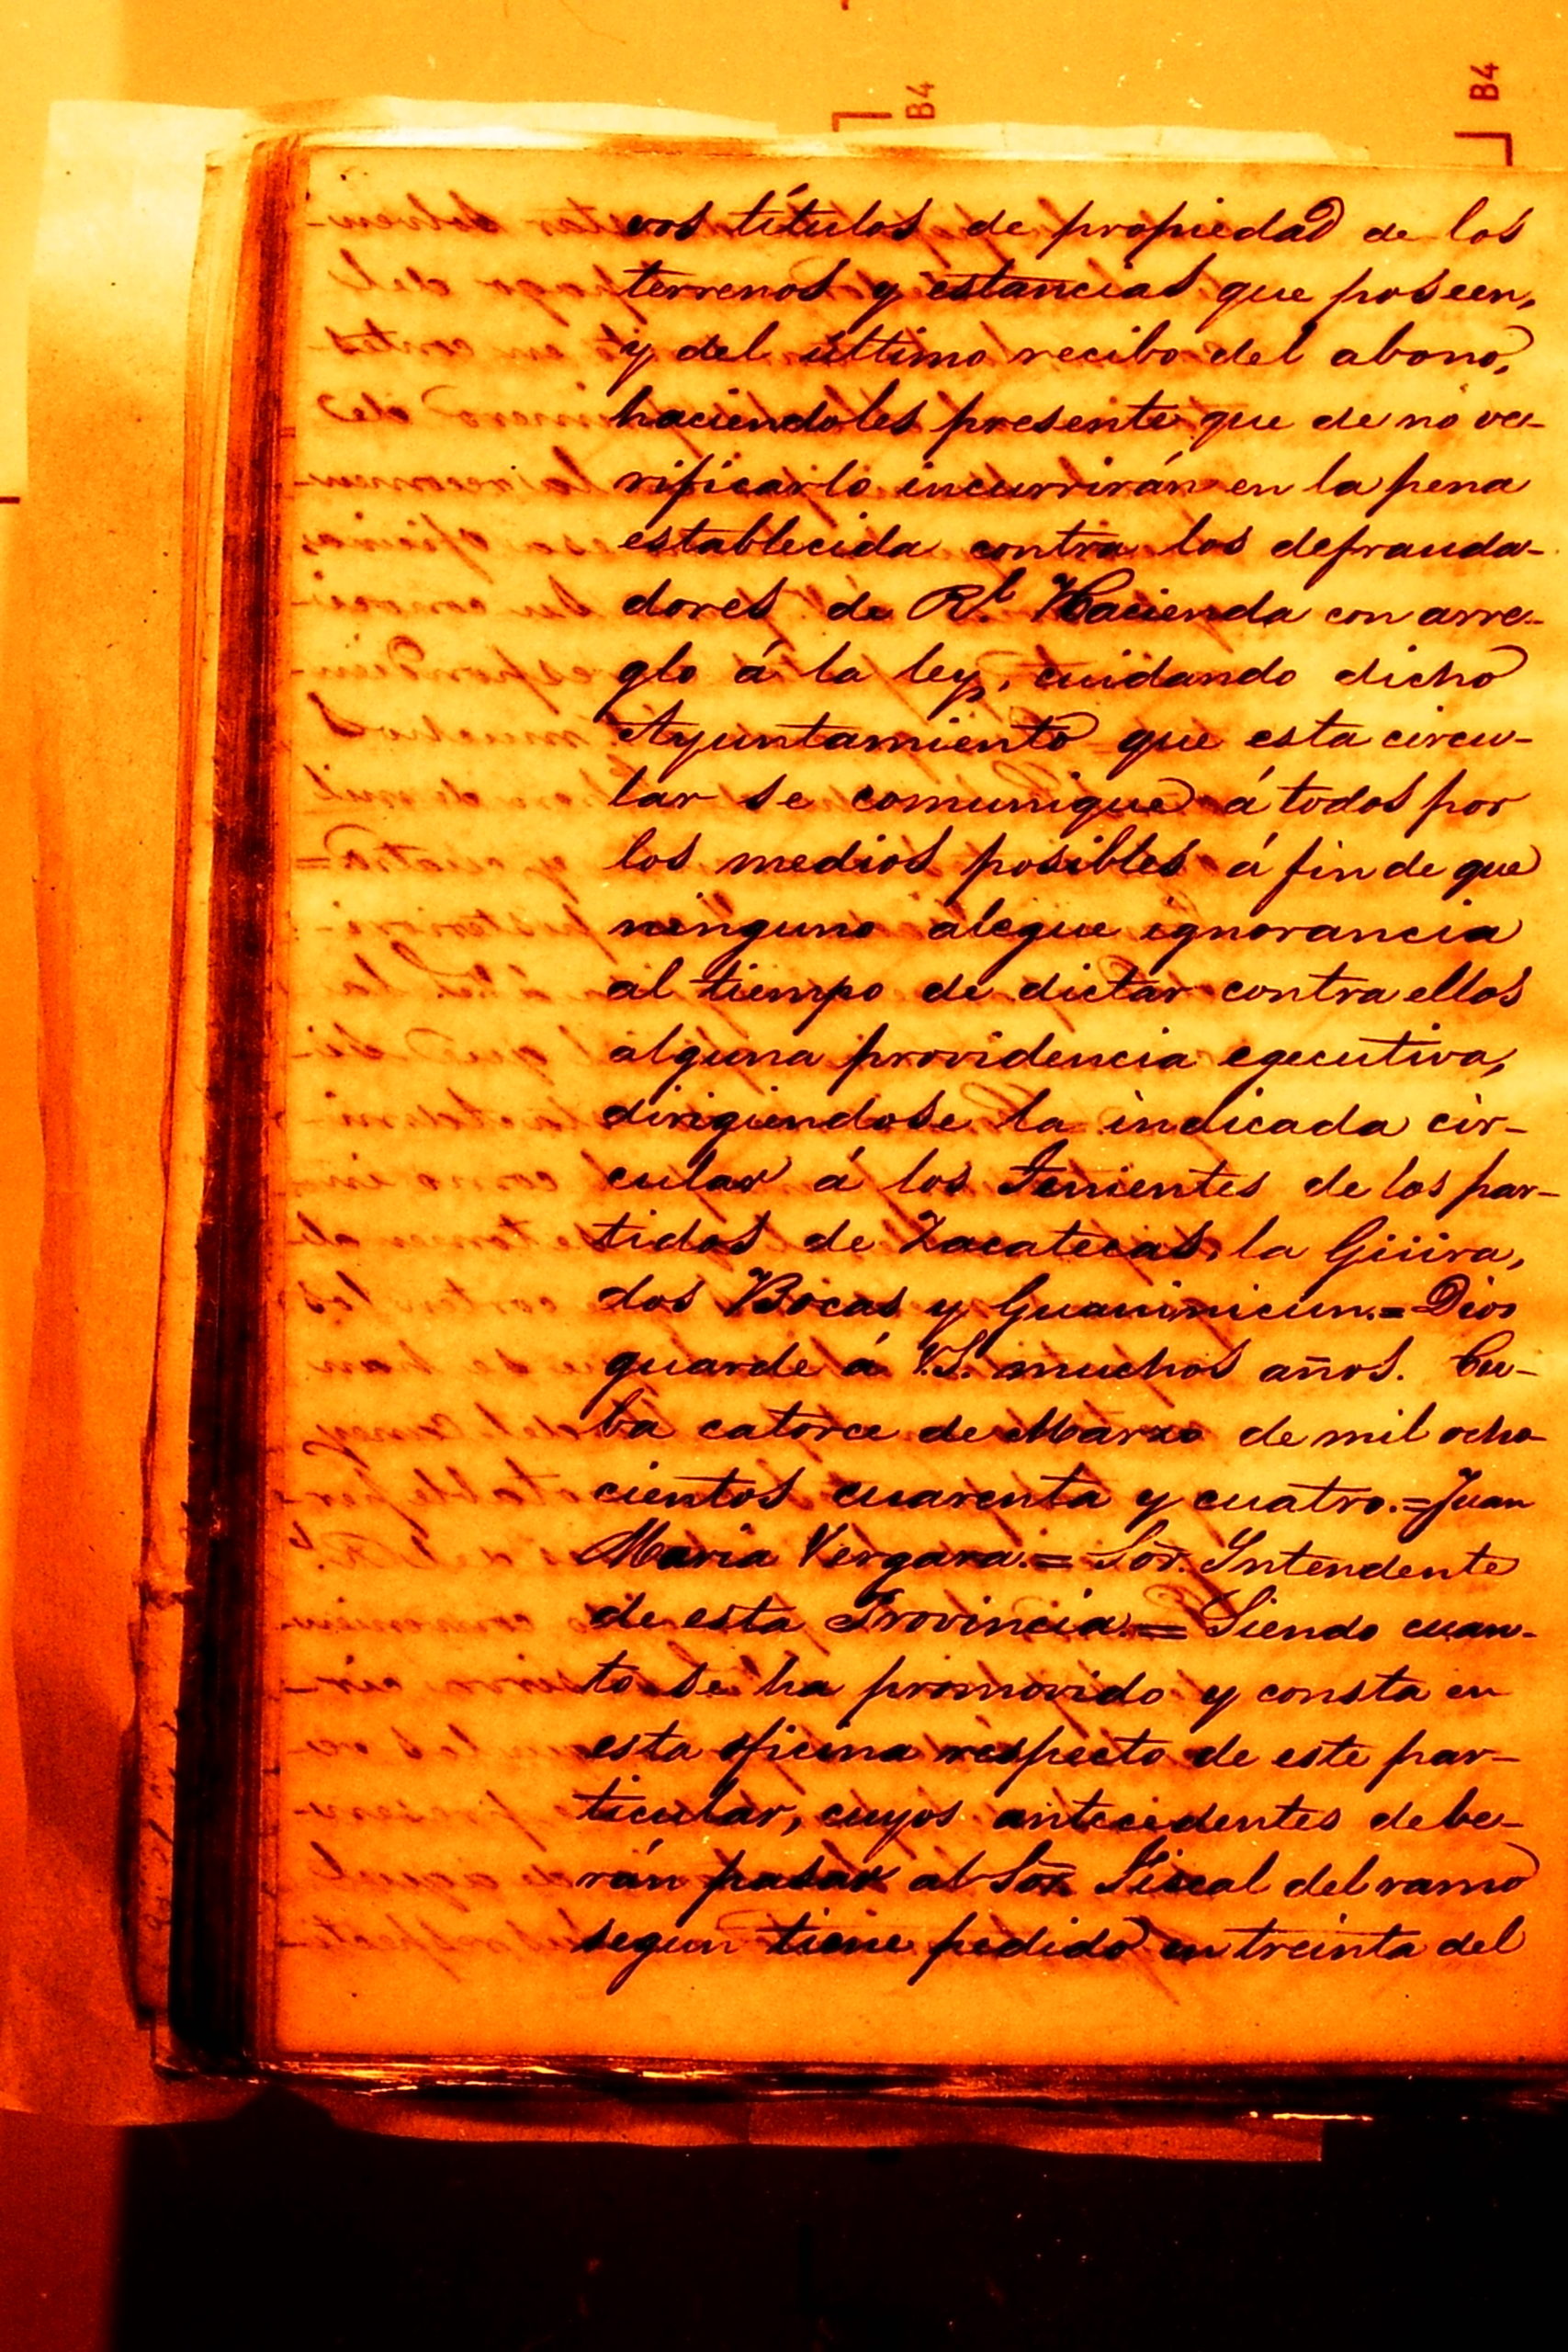 B4
B4
vos títulos de propiedad de los
terrenos y estancias que poseen,
y del último recibo del abono,
haciendoles presente que de no ve-
rificarlo incurrirán en la pena
establecida contra los defrauda-
dores de Rl. Hacienda con arre-
glo á la ley, cuidando dicho
Ayuntamiento que esta circu-
lar se comunique á todos por
los medios posibles á fin de que
ninguno alegue ignorancia
al tiempo de dictar contra ellos
alguna providencia egecutiva,
dirigiendose la indicada cir-
cular á los Tenientes de los par-
tidos de Zacatecas, la Güira,
dos Bocas y Guaninicun.= Dios
guarde á V.S. muchos años. Cu-
ba catorce de Marzo de mil ocho-
cientos cuarenta y cuatro.= Juan
Maria Vergara.= Sor. Intendente
de esta Provincia.= Siendo cuan-
to se ha promovido y consta en
esta oficina respecto de este par-
ticular, cuyos antecedentes debe-
rán pasar al Sor. Fiscal del ramo
segun tiene pedido en treinta del